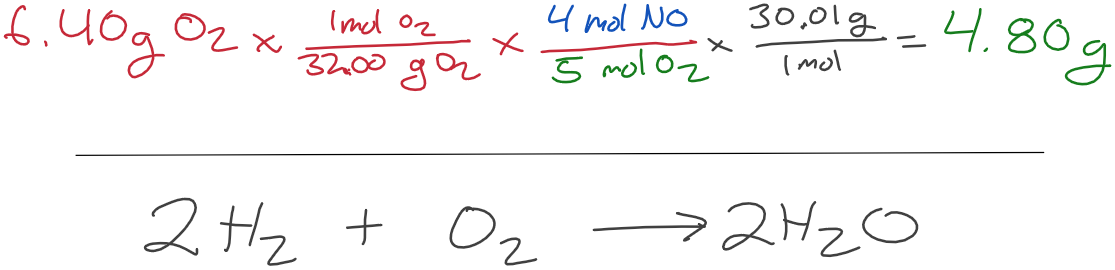 6.40g O₂ × 1 mol O₂ / 32.00 g O₂ × 4 mol NO / 5 mol O₂ × 30.01g / 1 mol = 4.80g
2H₂ + O₂ → 2H₂O